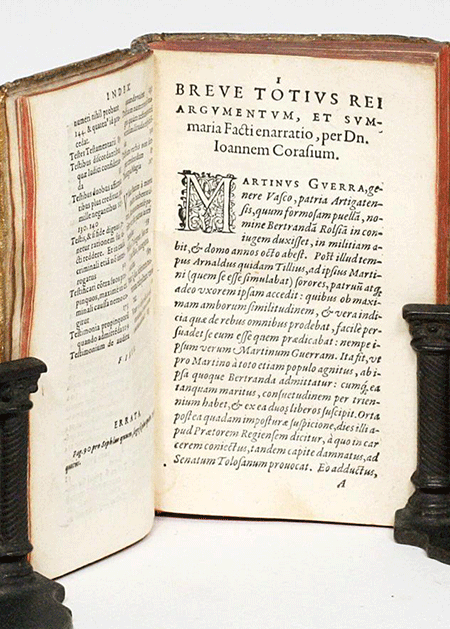 INDEX
numeri nihil probant
144. & quatenꝰ id pro-
cedat.
Testes Testamentarii
Testibus discordantibus
quæ iudici conside-
da
Testibus duobus assertis
bus plus creditur, quàm
mille negantibus
130. 140
Testis, &
retur rationem
cti reddere. Et in causa
criminali etiã
rogatus
Testificari cõtra suos pro-
pinquos, maximè in cri-
minali causa nemo co-
gitur.
Testimonia propinquorũ
quando admittẽda
Testimonium de auditu
FINIS
ERRATA
Pag. 90 pro
I
BREVE TOTIVS REI
ARGVMENTVM, ET SVM-
maria Facti enarratio, per Dn.
Ioannem Corasium.
MARTINVS GVERRA, ge-
nere Vasco, patria Artigaten-
sis, quum formosam puellã, no-
mine Bertrandã Rolsiã in con-
iugem duxisset, in militiam a-
bit, & domo annos octo abest. Post illud tem-
pus Arnaldus quidam Tillius, ad ipsius Marti-
ni (quem se esse simulabat) sorores, patruũ atq́;
adeo vxorem ipsam accedit: quibus ob maxi-
mam amborum similitudinem, & vera indi-
cia quæ de rebus omnibus prodebat, facilè per-
suadet se eum esse quem prædicabat: nempe i-
psum verum Martinum Guerram. Ita fit, vt
pro Martino à toto etiam populo agnitus, ab i-
psa quoque Bertranda admittatur: cumq́; ea
tanquam maritus, consuetudinem per trien-
nium habet, & ex ea duos liberos suscipit. Orta
postea quadam imposturæ suspicione, dies illi a-
pud Prætorem Regiensem dicitur, à quo in car
cerem coniectus, tandem capite damnatus, ad
Senatum Tolosanum prouocat. Eo adductus,
A